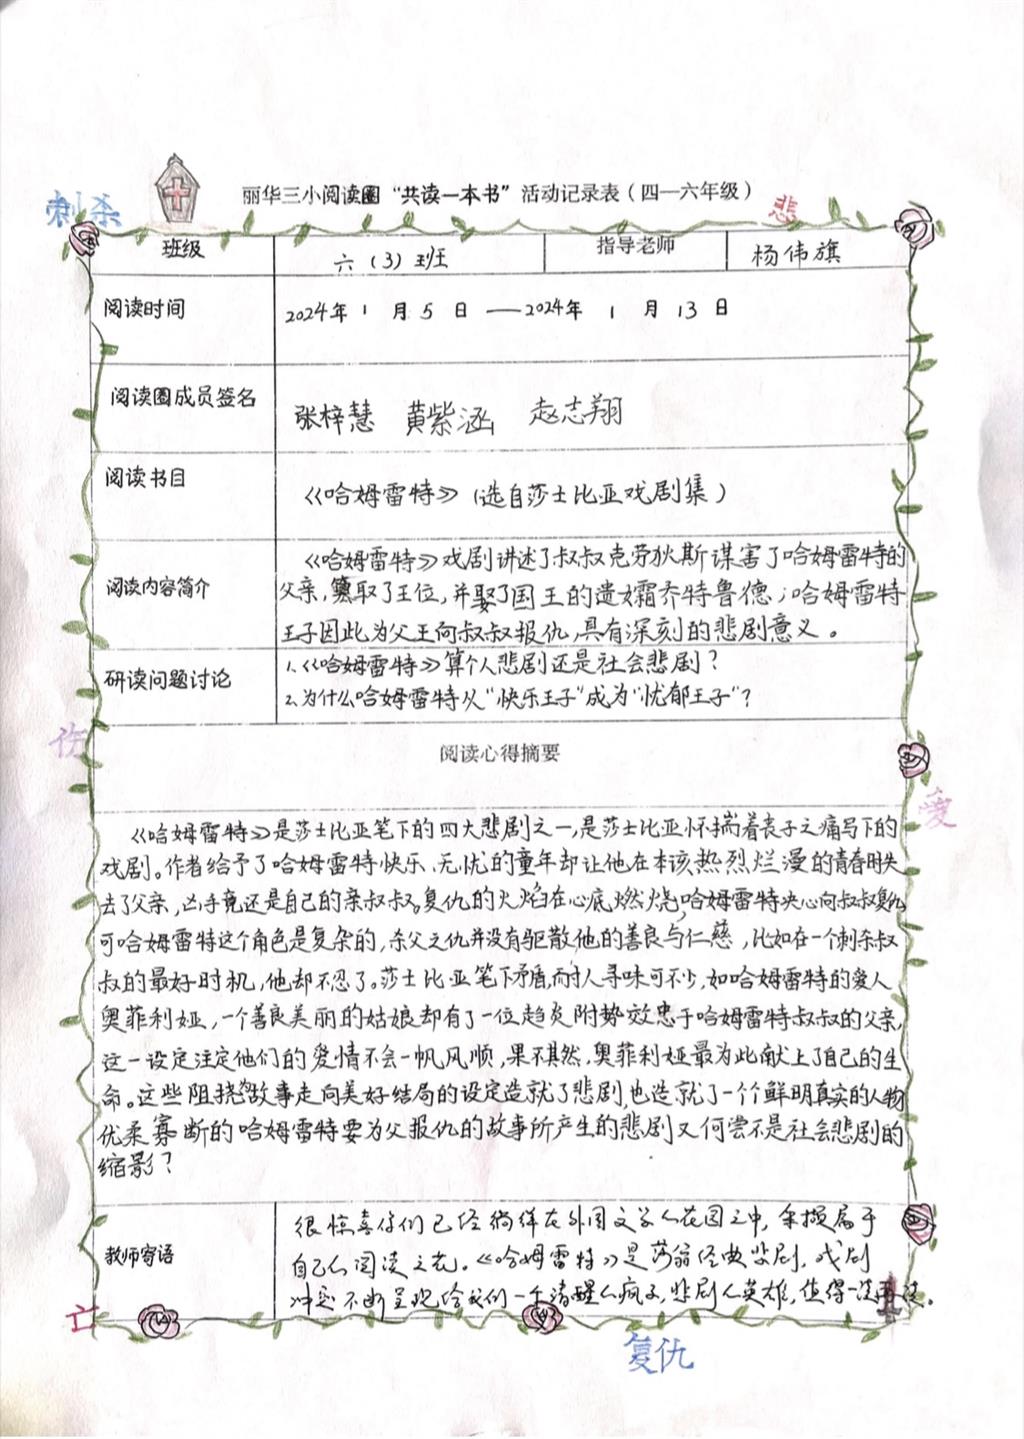 丽华三小阅读圈“共读一本书”活动记录表（四—六年级）
刺杀
悲
班级
六（3）班
指导老师
杨伟旗
阅读时间
2024年 1 月 5 日 —2024年 1 月 13 日
阅读圈成员签名
张梓慧 黄紫涵 赵志翔
阅读书目
《哈姆雷特》（选自莎士比亚戏剧集）
阅读内容简介
《哈姆雷特》戏剧讲述了叔叔克劳狄斯谋害了哈姆雷特的
父亲，篡取了王位，并娶了国王的遗孀乔特鲁德；哈姆雷特
王子因此为父王向叔叔报仇，具有深刻的悲剧意义。
研读问题讨论
1.《哈姆雷特》算个人悲剧还是社会悲剧？
2.为什么哈姆雷特从“快乐王子”成为“忧郁王子”？
伤
阅读心得摘要
爱
《哈姆雷特》是莎士比亚笔下的四大悲剧之一，是莎士比亚怀揣着丧子之痛写下的
戏剧。作者给予了哈姆雷特快乐、无忧的童年却让他在本该热烈烂漫的青春时失
去了父亲，凶手竟还是自己的亲叔叔。复仇的火焰在心底燃烧，哈姆雷特决心向叔叔复仇
可哈姆雷特这个角色是复杂的，杀父之仇并没有驱散他的善良与仁慈，比如在一个刺杀叔
叔的最好时机，他却不忍了。莎士比亚笔下矛盾，耐人寻味可不少，如哈姆雷特的爱人
奥菲利娅，一个善良美丽的姑娘却有了一位趋炎附势效忠于哈姆雷特叔叔的父亲，
这一设定注定他们的爱情不会一帆风顺，果不其然，奥菲利娅最为此献上了自己的生
命。这些阻挠为故事走向美好结局的设定造就了悲剧，也造就了一个个鲜明真实的人物
优柔寡断的哈姆雷特要为父报仇的故事所产生的悲剧又何尝不是社会悲剧的
缩影？
教师寄语
很惊喜你们已经徜徉在外国文学的花园之中，采撷属于
自己的阅读之花。《哈姆雷特》是莎翁经典悲剧，戏剧
冲突不断呈现给我们一个清醒的疯子，悲剧的英雄，值得一读再读。
亡
复仇